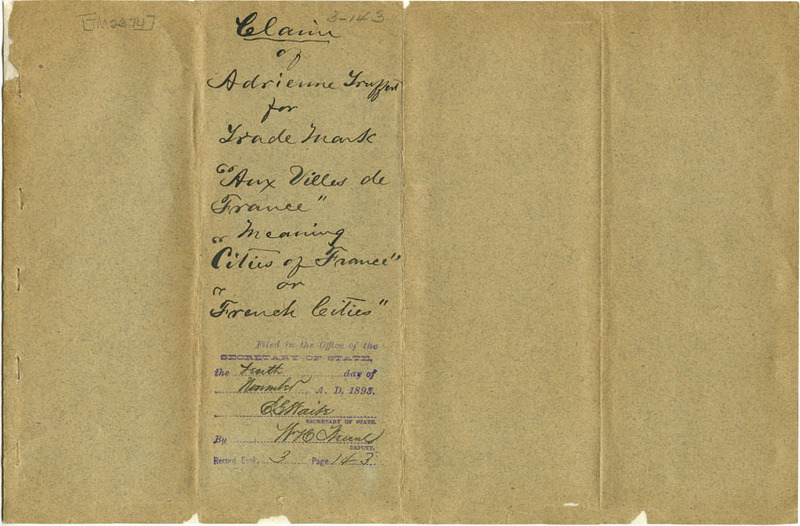 [TM2374]
3-143
Claim
of
Adrienne Truffert
for
Trade Mark
"Aux Villes de
France"
Meaning
"Cities of France"
or
"French Cities"
Filed in the Office of the
SECRETARY OF STATE,
the Tenth day of
November A. D. 1893.
E G Waite
SECRETARY OF STATE.
By W H
DEPUTY.
Record Book 3 Page 143